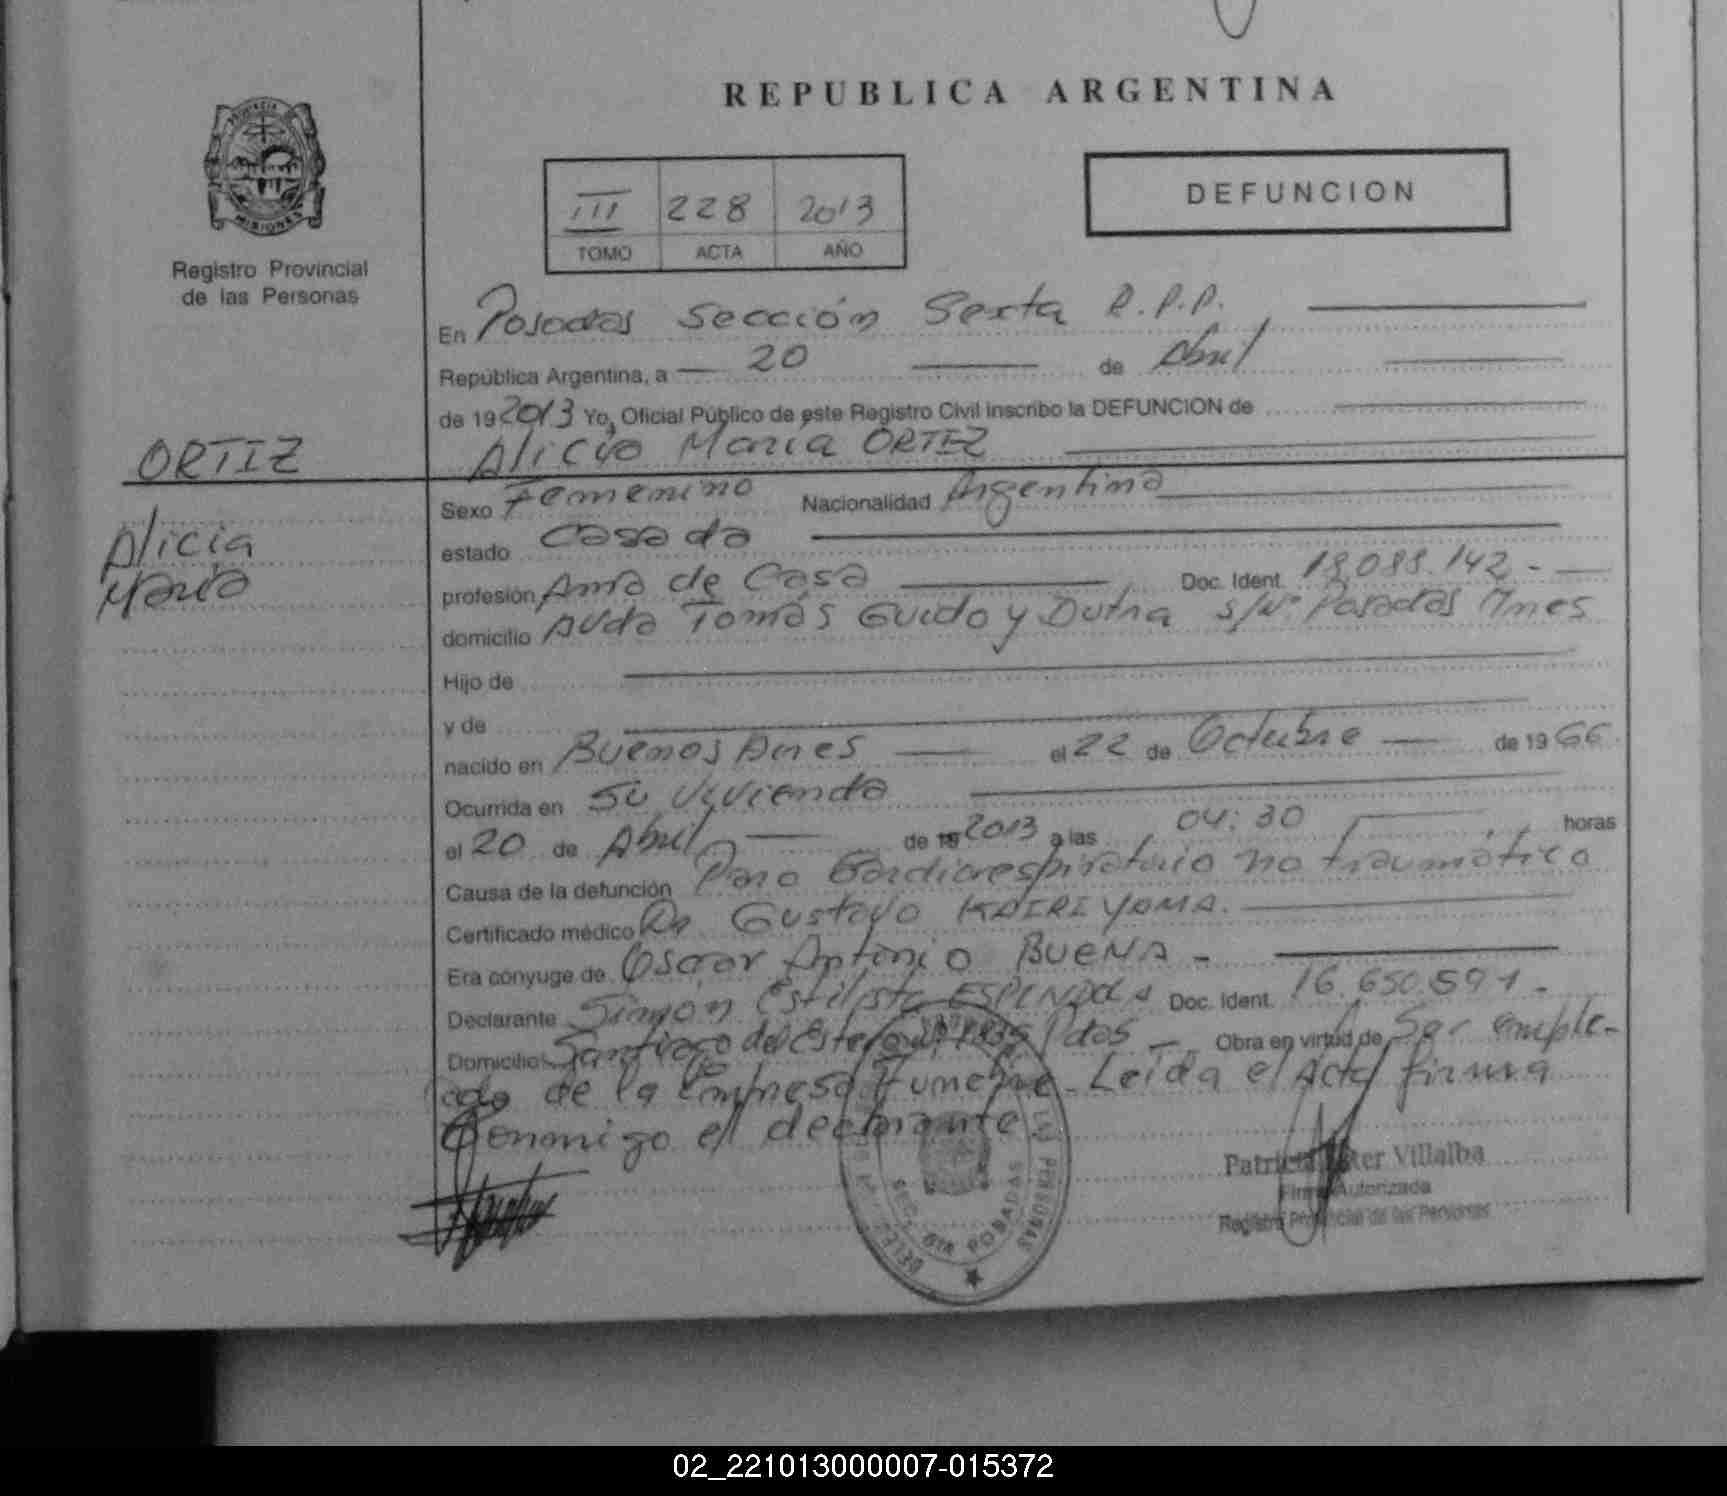 REPUBLICA ARGENTINA
PROVINCIA
MISIONES
Registro Provincial
de las Personas
III 228 2013
TOMO ACTA AÑO
DEFUNCION
En Posadas Sección Sexta R.P.P.
República Argentina, a 20 de Abril
de 19 2013 Yo, Oficial Público de este Registro Civil inscribo la DEFUNCION de
ORTIZ
Alicia María ORTIZ
Alicia
María
Sexo Femenino Nacionalidad Argentina
estado Casada
profesión Ama de Casa Doc. Ident. 18.088.142.-
domicilio Avda Tomás Guido y Dutra s/Nº Posadas Mnes
Hijo de
y de
nacido en Buenos Aires el 22 de Octubre de 1966
Ocurrida en Su vivienda
el 20 de Abril de 19 2013 a las 04:30 horas
Causa de la defunción Paro Cardiorespiratorio no traumático
Certificado médico Dr Gustavo KAIRIYAMA.
Era conyuge de Oscar Antonio BUENA -
Declarante Simón Doc. Ident. 16.650.591.-
Domicilio Santiago del Estero Pdas - Obra en virtud de Ser emple-
ado de la Empresa Funebre - Leída el Acta firma
Conmigo el declarante
SECC. 6ta POSADAS
Patricia Villalba
Firma Autorizada
Registro Provincial de las Personas
02_221013000007-015372